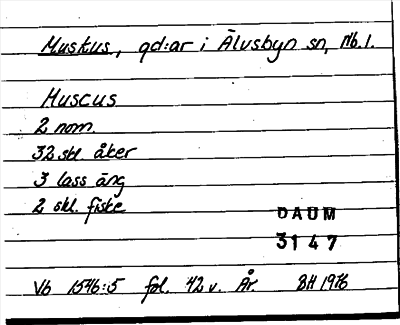 Muskus, gd:ar i Älvsbyn sn, Nb.l.
Muscus
2 nom.
32 skl åker
3 lass äng
2 skl. fiske
DAUM
3147
Vb 1546:5 fol. 42 v. År. BH 1976